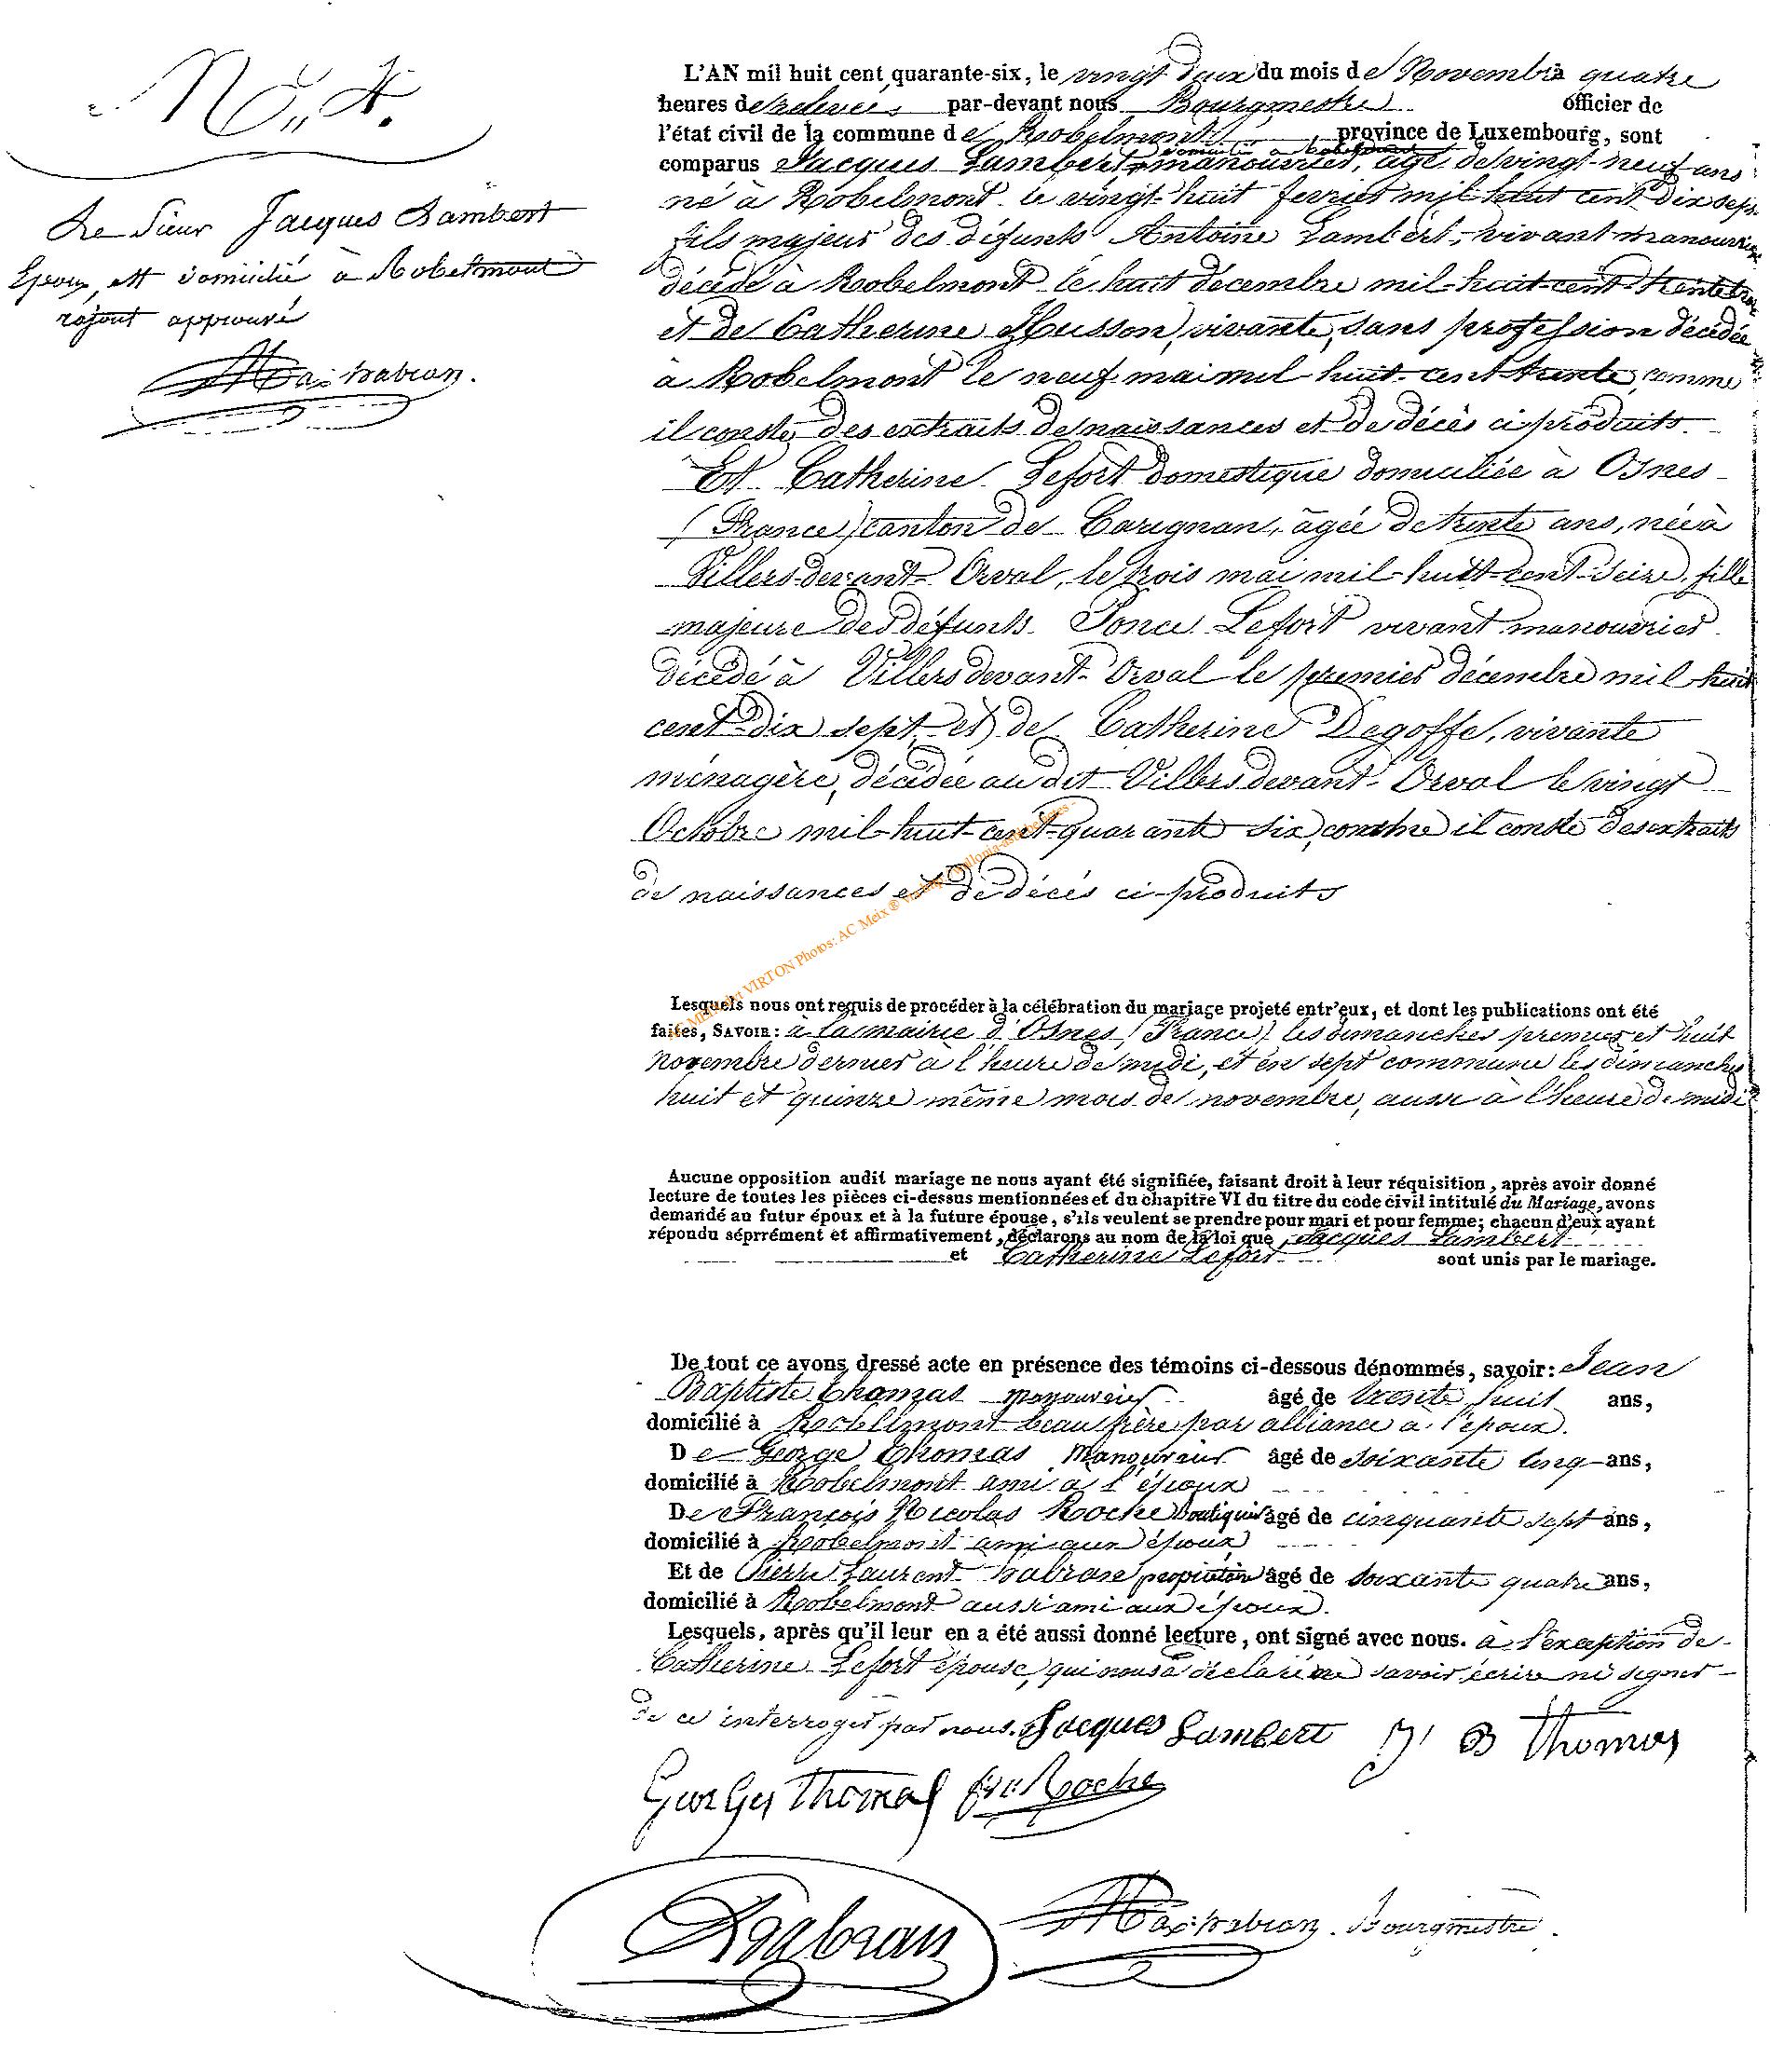 N° 4.
Le Sieur Jacques Lambert
Epoux, est domicilié à Robelmont
rajout approuvé
Max: habran.
L'AN mil huit cent quarante-six, le vingt deux du mois de Novembre à quatre
heures de relevée, par-devant nous Bourgmestre officier de
l'état civil de la commune de Robelmont, province de Luxembourg, sont
domicilié à Robelmont
comparus Jacques Lambert, manouvrier, âgé de vingt-neuf ans
né à Robelmont le vingt-huit fevrier mil-huit cent dix sept
fils majeur des défunts Antoine Lambert, vivant manouvrier
décédé à Robelmont le huit décembre mil-huit-cent-trente trois
et de Catherine Husson, vivante, sans profession décédée
à Robelmont le neuf mai mil huit-cent trente, comme
il conste des extraits de naissances et de décès ci-produits.
Et Catherine Lefort domestique domiciliée à Osnes
(France) canton de Carignan, âgée de trente ans, née à
Villers devant Orval, le trois mai mil-huit-cent-seize, fille
majeure des défunts Ponce Lefort vivant manouvrier
décédé à Villers devant-Orval le premier décembre mil huit
cent dix sept, et de Catherine Degoffe, vivante
ménagère, décédée au dit Villers devant-Orval le vingt
Octobre mil-huit-cent-quarante six, comme il conste des extraits
de naissances et de décès ci-produits
Lesquels nous ont requis de procéder à la célébration du mariage projeté entr'eux, et dont les publications ont été
faites, SAVOIR: à la mairie d'Osnes (France) les dimanches premier et huit
novembre dernier à l'heure de midi, et en sept commune les dimanches
huit et quinze même mois de novembre, aussi à l'heure de midi
Aucune opposition audit mariage ne nous ayant été signifiée, faisant droit à leur réquisition, après avoir donné
lecture de toutes les pièces ci-dessus mentionnées et du chapitre VI du titre du code civil intitulé du Mariage, avons
demandé au futur époux et à la future épouse, s'ils veulent se prendre pour mari et pour femme; chacun d'eux ayant
répondu séprrément et affirmativement, déclarons au nom de la loi que Jacques Lambert
et Catherine Lefort sont unis par le mariage.
De tout ce avons dressé acte en présence des témoins ci-dessous dénommés, savoir: Jean
Baptiste Thomas manouvrier âgé de trente huit ans,
domicilié à Robelmont beau frère par alliance a l'epoux.
De George Thomas Manouvrier âgé de soixante cinq ans,
domicilié à Robelmont ami à l'époux
De François Nicolas Roche Boutiquier âgé de cinquante sept ans,
domicilié à Robelmont ami aux époux
Et de Pierre Laurent habran propriétaire âgé de soixante quatre ans,
domicilié à Robelmont aussi ami aux époux.
Lesquels, après qu'il leur en a été aussi donné lecture, ont signé avec nous. à l'exception de
Catherine Lefort épouse, qui nous a déclaré ne savoir écrire ni signer
de ce interroger par nous. Jacques Lambert J B Thomas
Georges Thomas Roche
habran Max: habran. Bourgmestre.